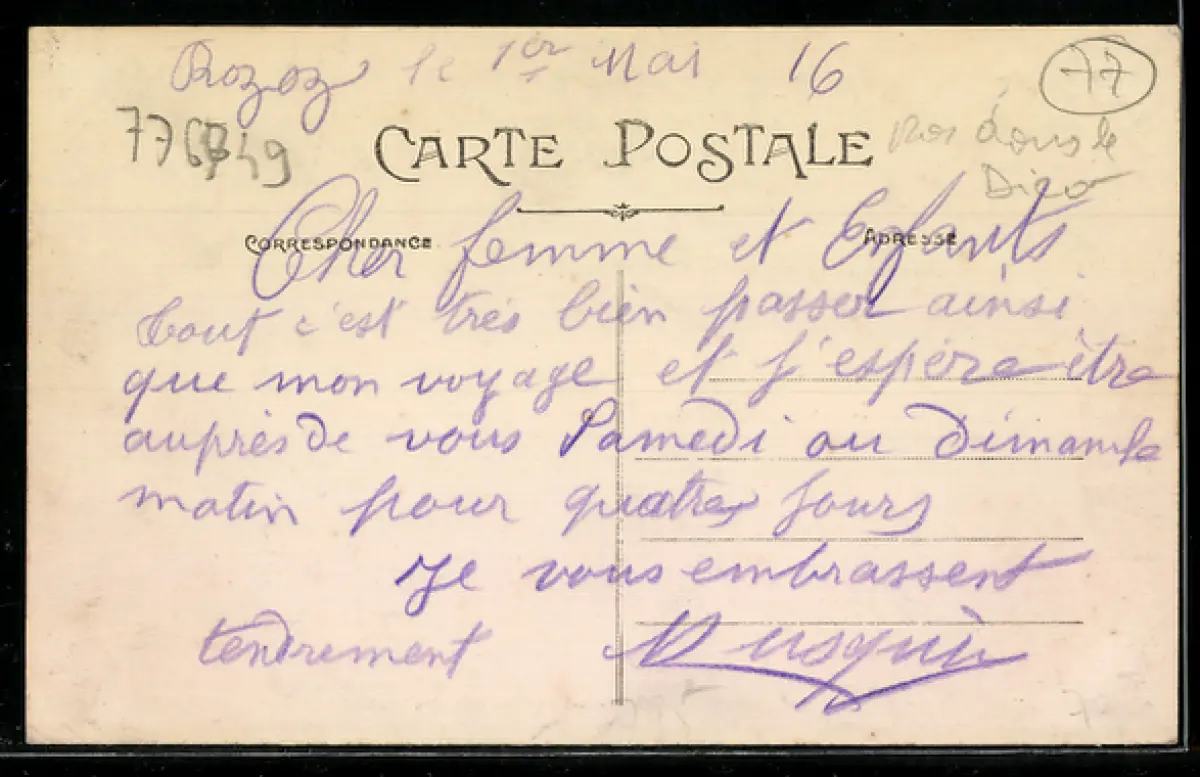 Rozoy le 1er Mai 16
77
776749
CARTE POSTALE
CORRESPONDANCE
ADRESSE
Cher femme et Enfants
tout c'est très bien passer ainsi
que mon voyage et j'espère être
auprès de vous Samedi ou Dimanche
matin pour quatres jours
Je vous embrassent
tendrement